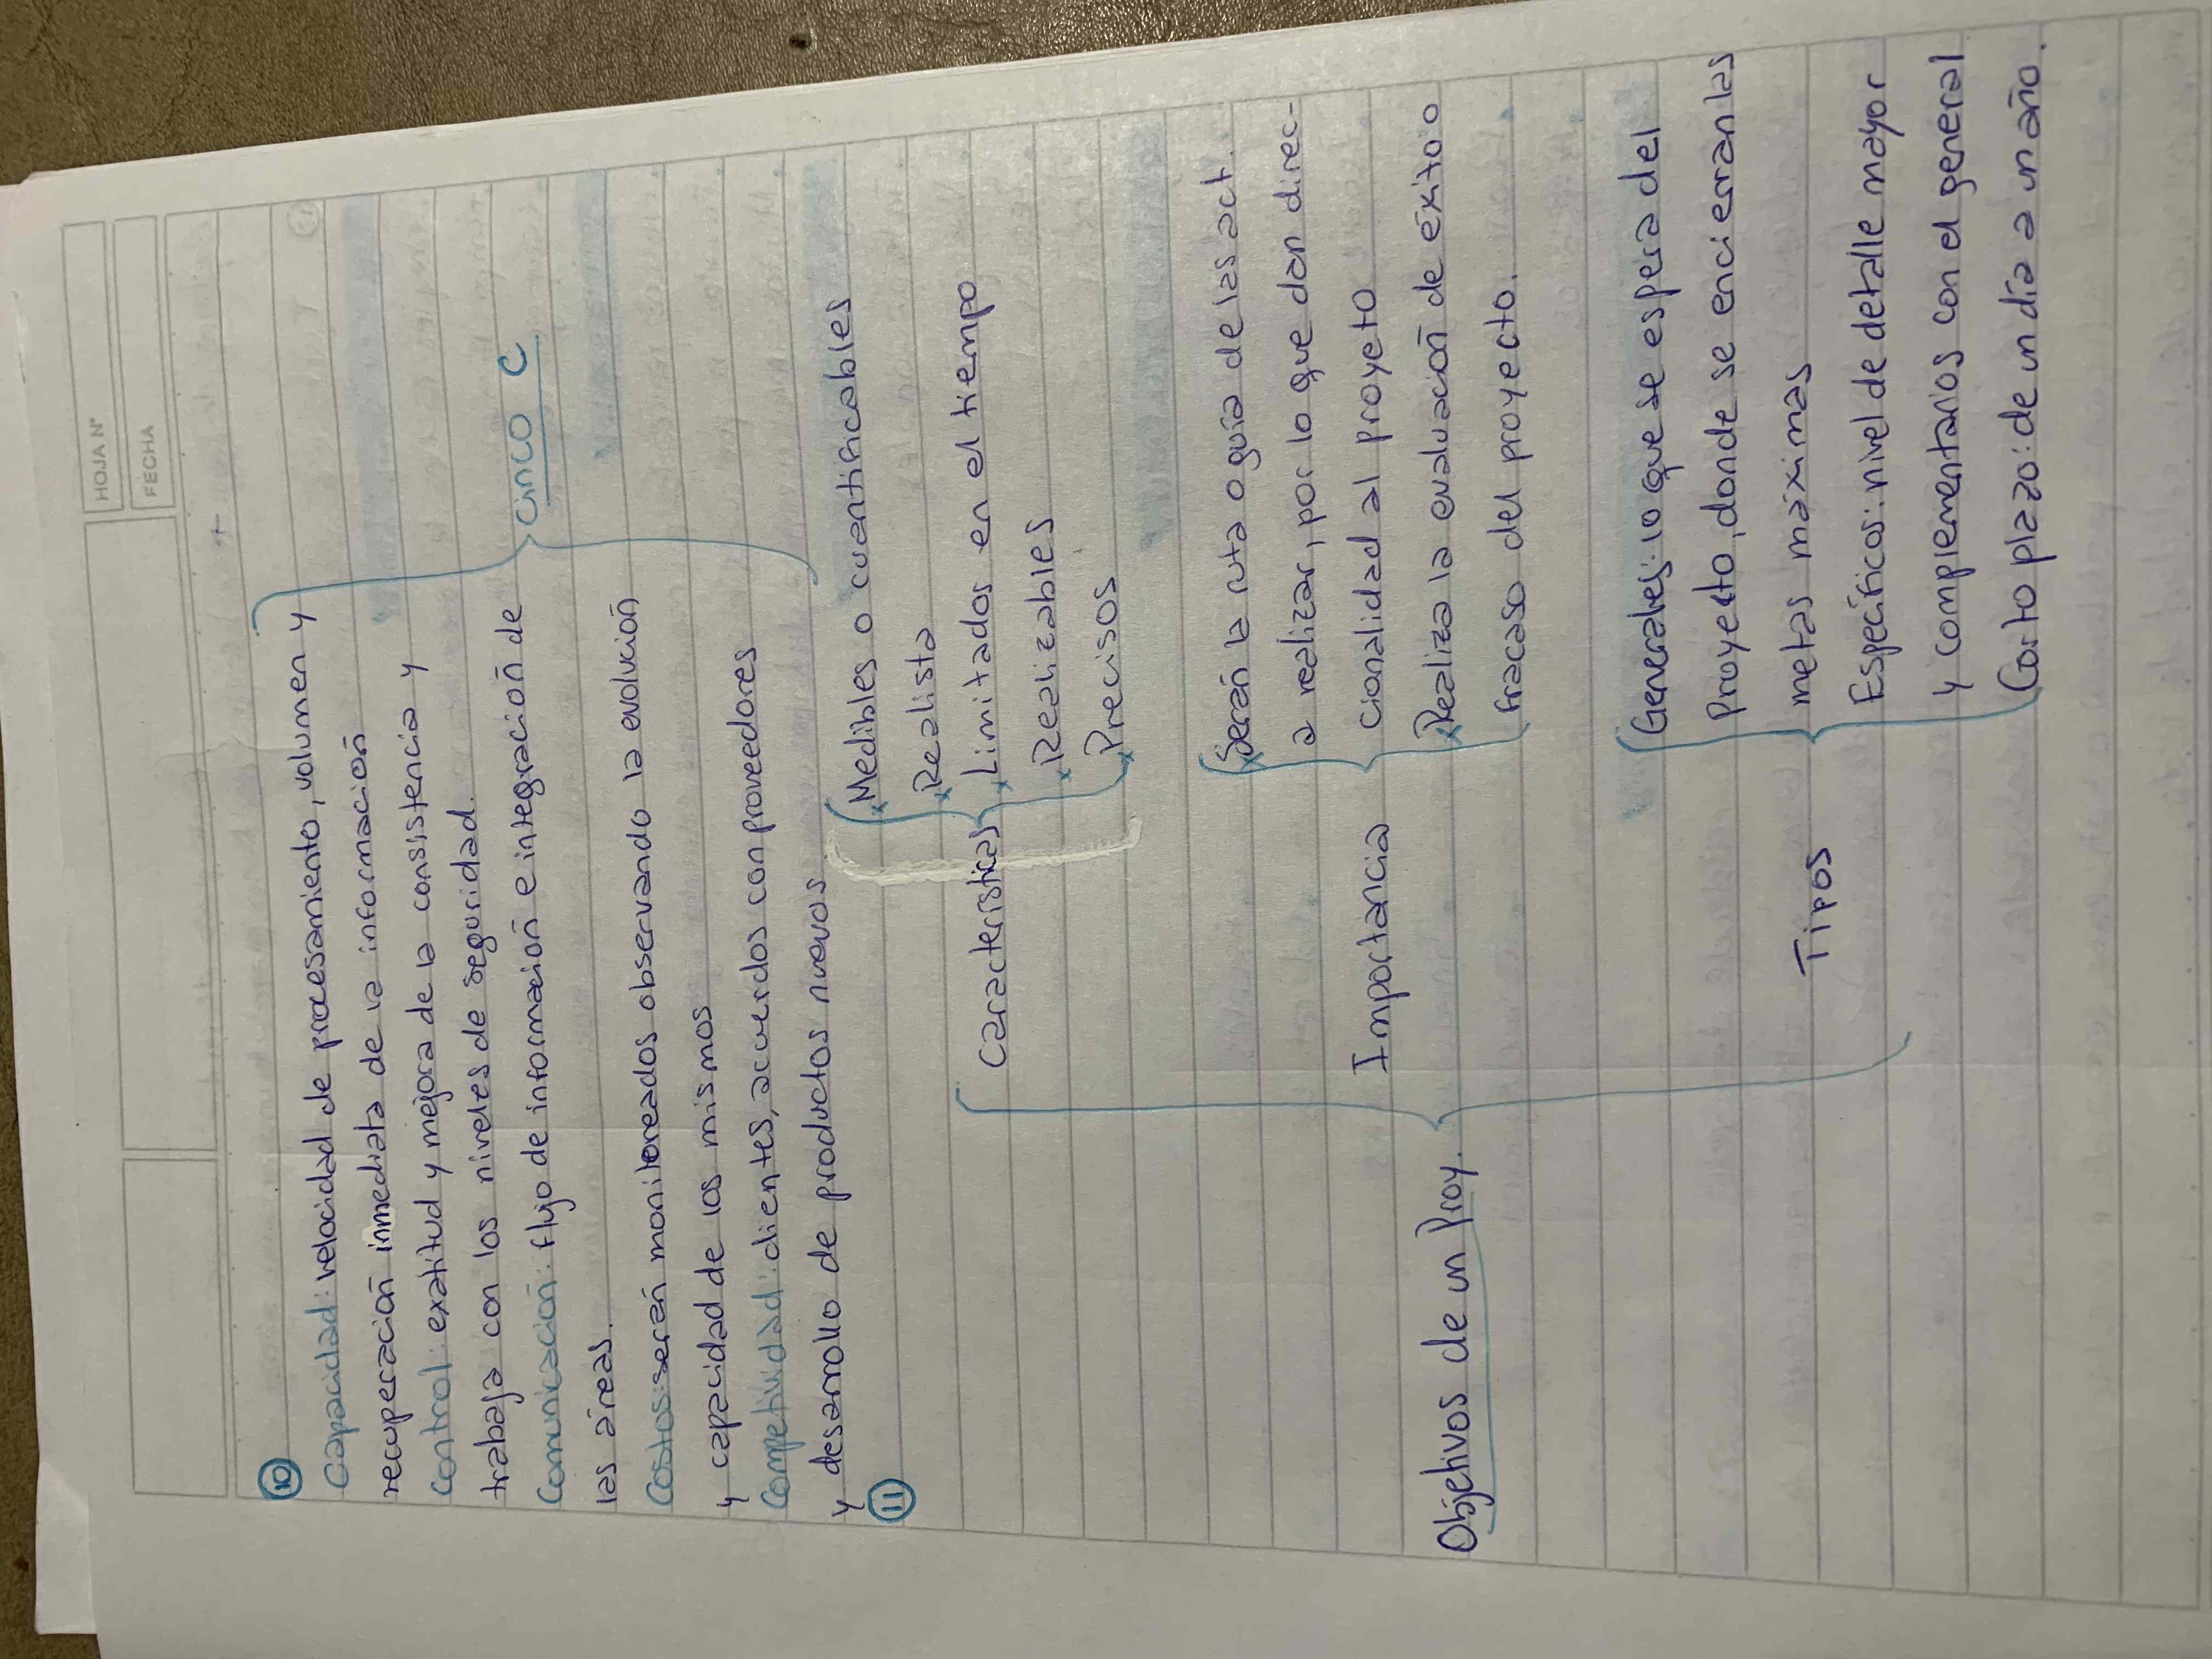 HOJA N°
FECHA
10
Capacidad: velocidad de procesamiento, volumen y
recuperación inmediata de la información
Control: exatitud y mejora de la consistencia y
trabaja con los niveles de seguridad.
Comunicación: flujo de información e integración de
las áreas.
Costos: serán monitoreados observando la evolución
y capacidad de los mismos
Competividad: clientes, acuerdos con proveedores
y desarrollo de productos nuevos.
Cinco C
11
Objetivos de un Proy.
Características
x Medibles o cuantificables
x Realista
x Limitados en el tiempo
x Realizables
x Precisos
Importancia
x Serán la ruta o guía de las act.
a realizar, por lo que dan direc-
cionalidad al proyeto
x Realiza la evaluación de éxito o
fracaso del proyecto.
Tipos
Generales: lo que se espera del
Proyecto, donde se encierran las
metas máximas
Específicos: nivel de detalle mayor
y complementarios con el general
Corto plazo: de un día a un año.